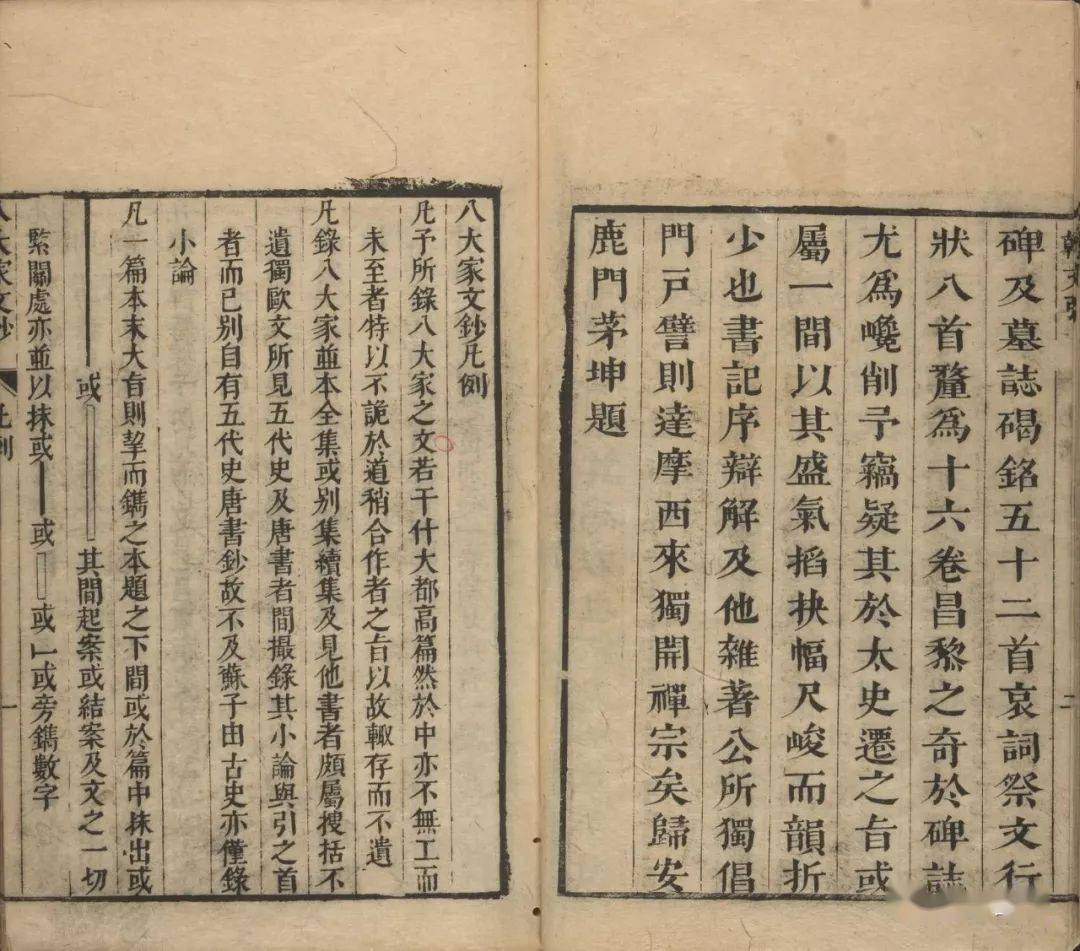 碑及墓誌碣銘五十二首哀詞祭文行
狀八首釐爲十六卷昌黎之奇於碑誌
尤爲巉削予竊疑其於太史遷之旨或
屬一間以其盛氣搯抉幅尺峻而韻折
少也書記序辯解及他雜著公所獨倡
門戸譬則達摩西來獨開禪宗矣歸安
鹿門茅坤題
八大家文鈔凡例
凡予所錄八大家之文若干什大都高篇然於中亦不無工而
未至者特以不詭於道稍合作者之旨以故輙存而不遺
凡錄八大家並本全集或别集續集及見他書者頗屬搜括不
遺獨歐文所見五代史及唐書者間撮錄其小論與引之首
者而已别自有五代史唐書鈔故不及蘇子由古史亦僅錄
小論
凡一篇本末大旨則挈而鐫之本題之下間或於篇中抹出或
或 其間起案或結案及文之一切
緊關處亦並以抹或 或 或 或旁鐫數字
八大家文鈔 凡例 一